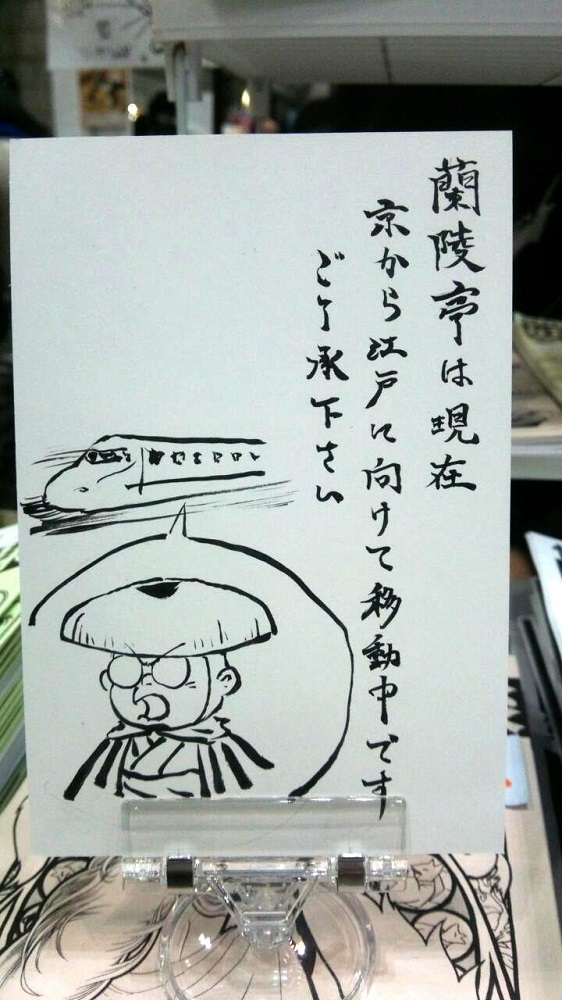 蘭陵亭は現在
京から江戸に向けて移動中です
ご了承下さい